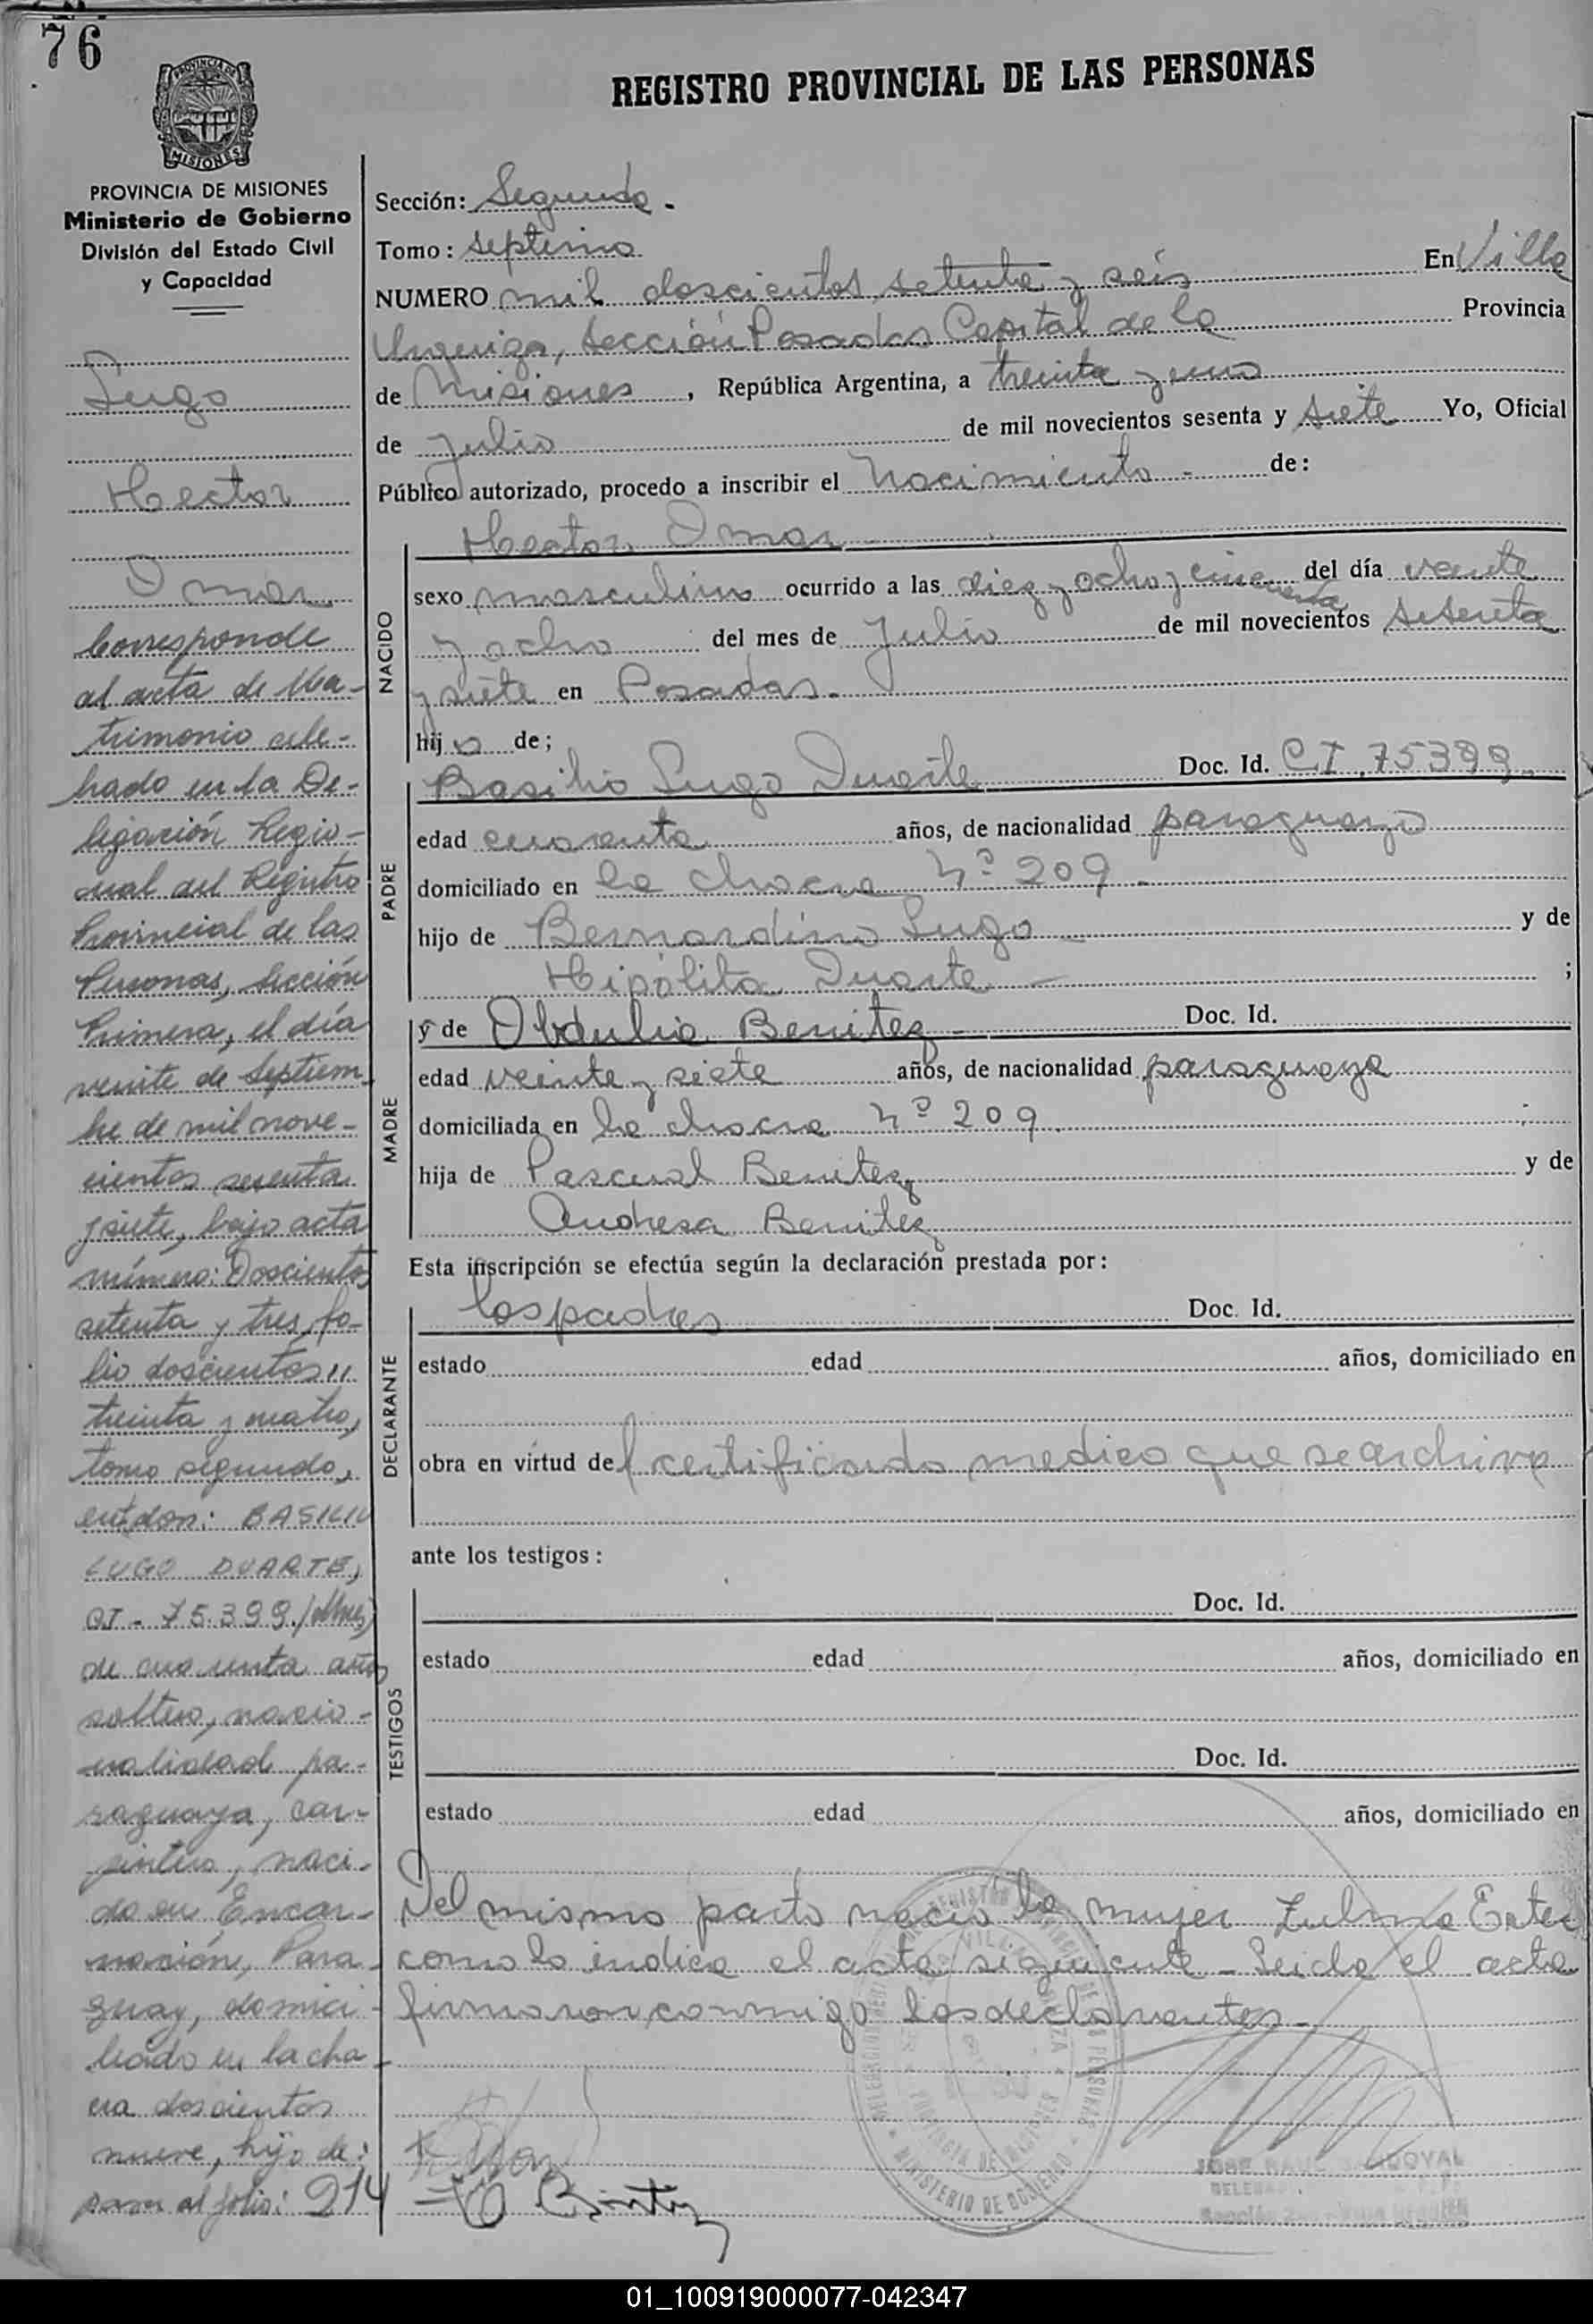 76
PROVINCIA DE
MISIONES
REGISTRO PROVINCIAL DE LAS PERSONAS
PROVINCIA DE MISIONES
Ministerio de Gobierno
División del Estado Civil
y Capacidad
Lugo
Hector
Omar
Corresponde
al acta de Ma-
trimonio cele-
brado en la De-
legación Regio-
nal del Registro
Provincial de las
Personas, Sección
Primera, el día
veinte de Septiem-
bre de mil nove-
cientos sesenta
y siete, bajo acta
número: Doscientos
setenta y tres, fo-
lio doscientos
treinta y cuatro,
tomo segundo,
entre don: BASILIO
LUGO DUARTE,
CI - 75.399./Mnes,
de cuarenta años
soltero, nacio-
nalidad pa-
raguaya, car-
pintero, naci-
do en Encar-
nación, Para-
guay, domici-
liado en la cha-
cra doscientos
nueve, hijo de:
pasa al folio: 214
Sección: Segunda.
Tomo: septimo
NUMERO mil doscientos setenta y seis En Villa
Urquiza, Sección Posadas Capital de la Provincia
de Misiones, República Argentina, a treinta y uno
de Julio de mil novecientos sesenta y siete Yo, Oficial
Público autorizado, procedo a inscribir el Nacimiento - de:
Hector Omar
NACIDO
sexo masculino ocurrido a las diez y ocho y cincuenta del día veinte
y ocho del mes de Julio de mil novecientos sesenta
y siete en Posadas.
hijo de;
PADRE
Basilio Lugo Duarte Doc. Id. C.I. 75399
edad cuarenta años, de nacionalidad paraguayo
domiciliado en la chacra Nº 209
hijo de Bernardino Lugo y de
Hipólita Duarte ;
MADRE
y de Obdulia Benitez Doc. Id.
edad veinte y siete años, de nacionalidad paraguaya
domiciliada en la chacra Nº 209
hija de Pascual Benitez y de
Andresa Benitez
Esta inscripción se efectúa según la declaración prestada por:
DECLARANTE
los padres Doc. Id.
estado edad años, domiciliado en
obra en virtud del certificado medico que se archiva
ante los testigos:
TESTIGOS
Doc. Id.
estado edad años, domiciliado en
Doc. Id.
estado edad años, domiciliado en
Del mismo parto nacio la mujer Zulma Ester
como lo indica el acta siguiente - Leida el acta
firmaron conmigo los declarantes -
MINISTERIO DE GOBIERNO
PROVINCIA DE MISIONES
01_100919000077-042347